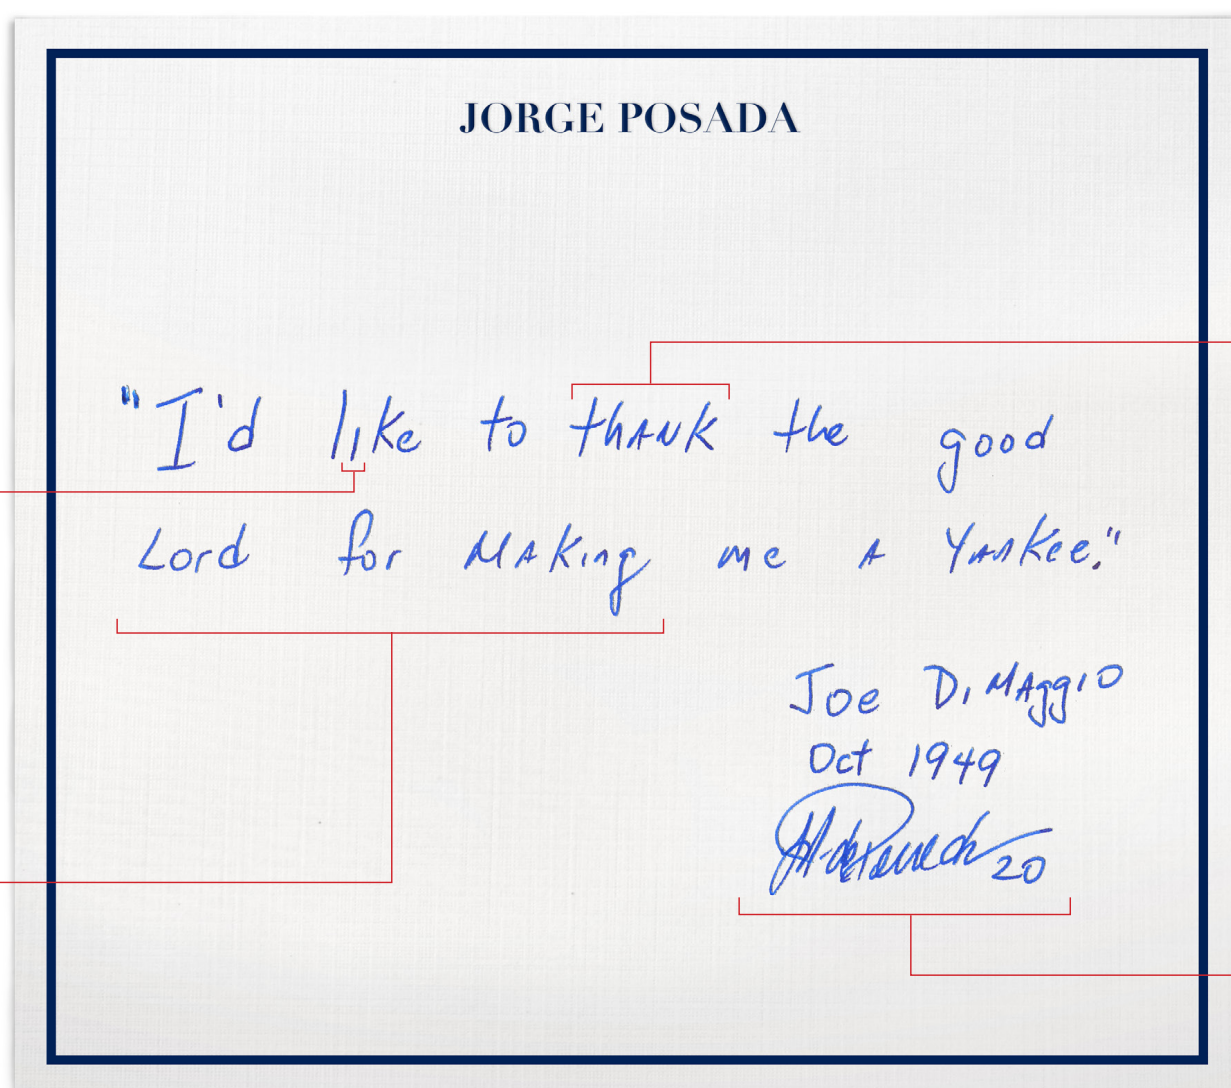 JORGE POSADA
"I'd like to thank the good
Lord for making me a Yankee."
Joe DiMaggio
Oct 1949
20